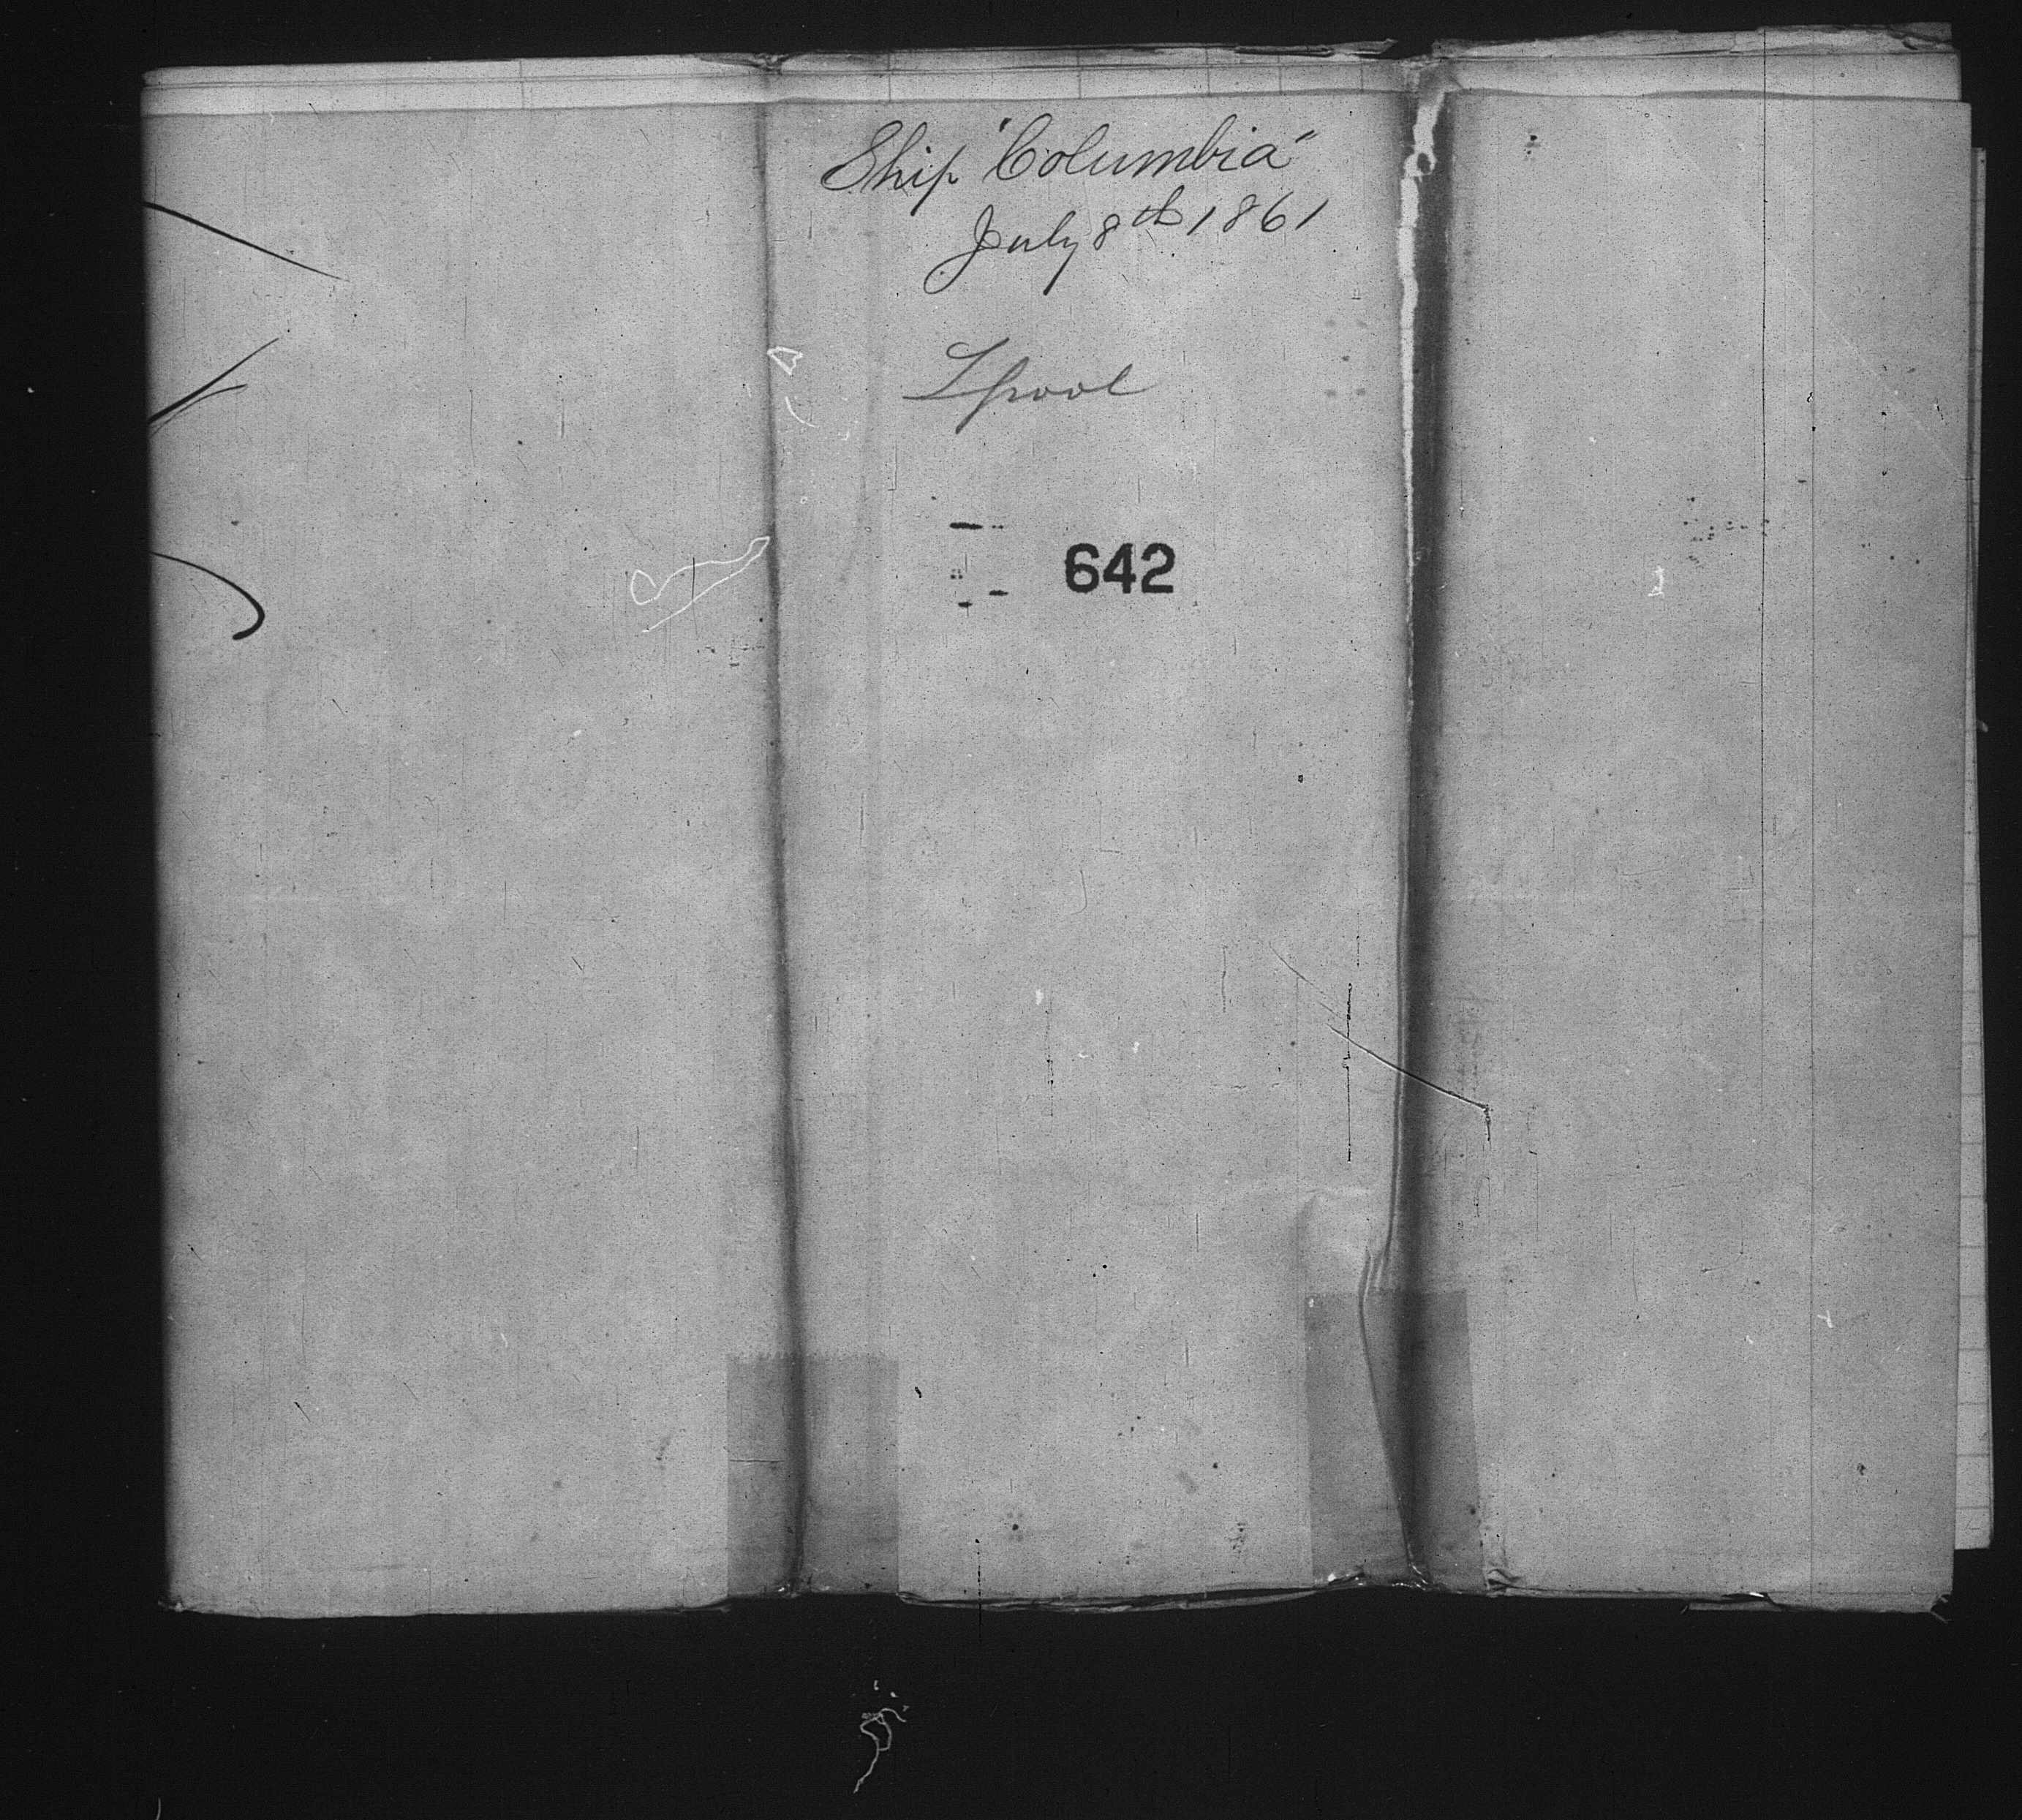 Ship "Columbia"
July 8th 1861
Lpool
642